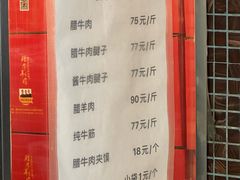 腊牛肉 75元/斤
腊牛肉腱子 77元/斤
酱牛肉腱子 77元/斤
腊羊肉 90元/斤
纯牛筋 77元/斤
腊牛肉夹馍 18元/个
小袋1元/个